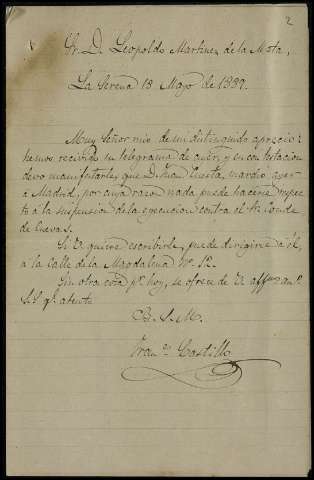 2
Sr. D. Leopoldo Martinez de la Mota,
La Serena 18 Mayo de 1889.
Muy Señor mio de mi distinguido aprecio:
hemos recivido su telegrama de ayer, y en contestacion
devo manifestarle, que D. Juan Cuesta, marchó ayer
á Madrid, por cuya razon nada puede hacerse respec
to á la suspension de la egecucion contra el Sr. Conde
de Cuevas.
Si V. quiere escribirle, puede dirigirse á él,
á la Calle de la Magdalena Nº. 12.
Sin otra cosa pr. hoy, se ofrece de V. affmo. am.º
S. S. q.
B. S. M.
Fran.co Castillo